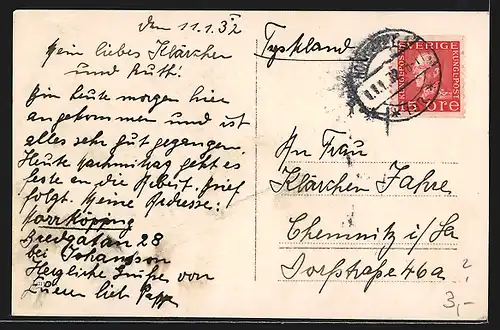 den 11.1.32
Mein liebes Klärchen
und Ruth!
Bin heute morgen hier
angekommen und ist
alles sehr gut gegangen.
Heute nachmittag geht es
feste an die Arbeit. Brief
folgt. Meine Adresse:
Norrköping
Bredgatan 28
bei Johanson
Herzliche Grüße von
Euern lieb. Papp
Tyskland
SVERIGE
KUNGLPOST
KUNGLPOST
15 ÖRE
An Frau
Klärchen Jahre
Chemnitz i/Sa
Dorfstraße 46a
?
3,-